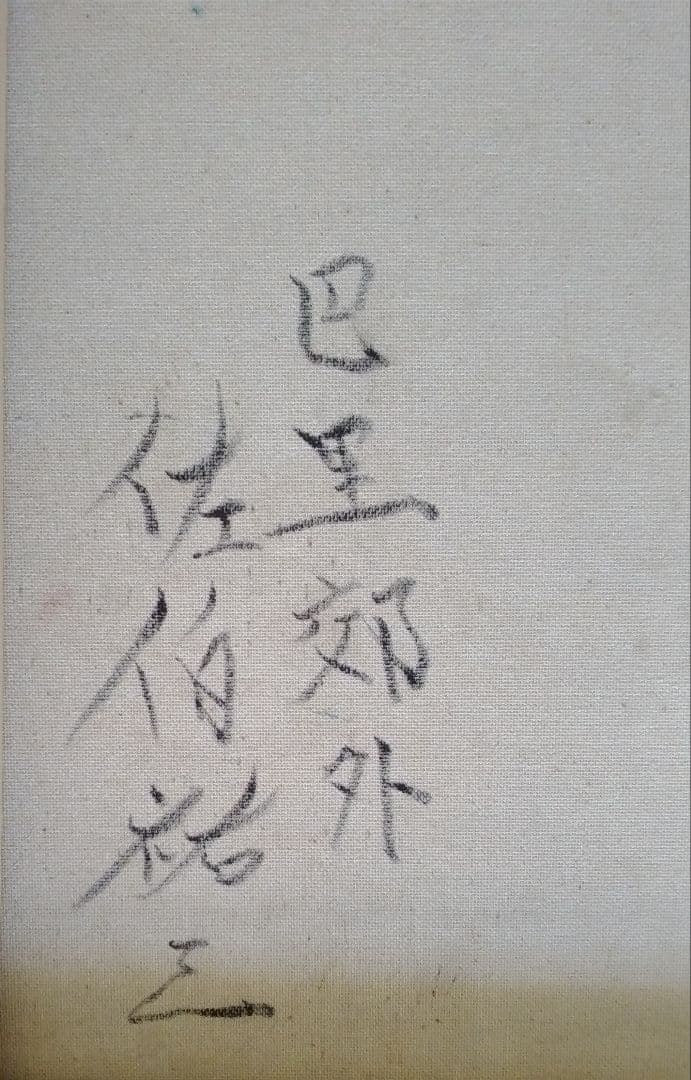 巴里郊外
佐伯祐三